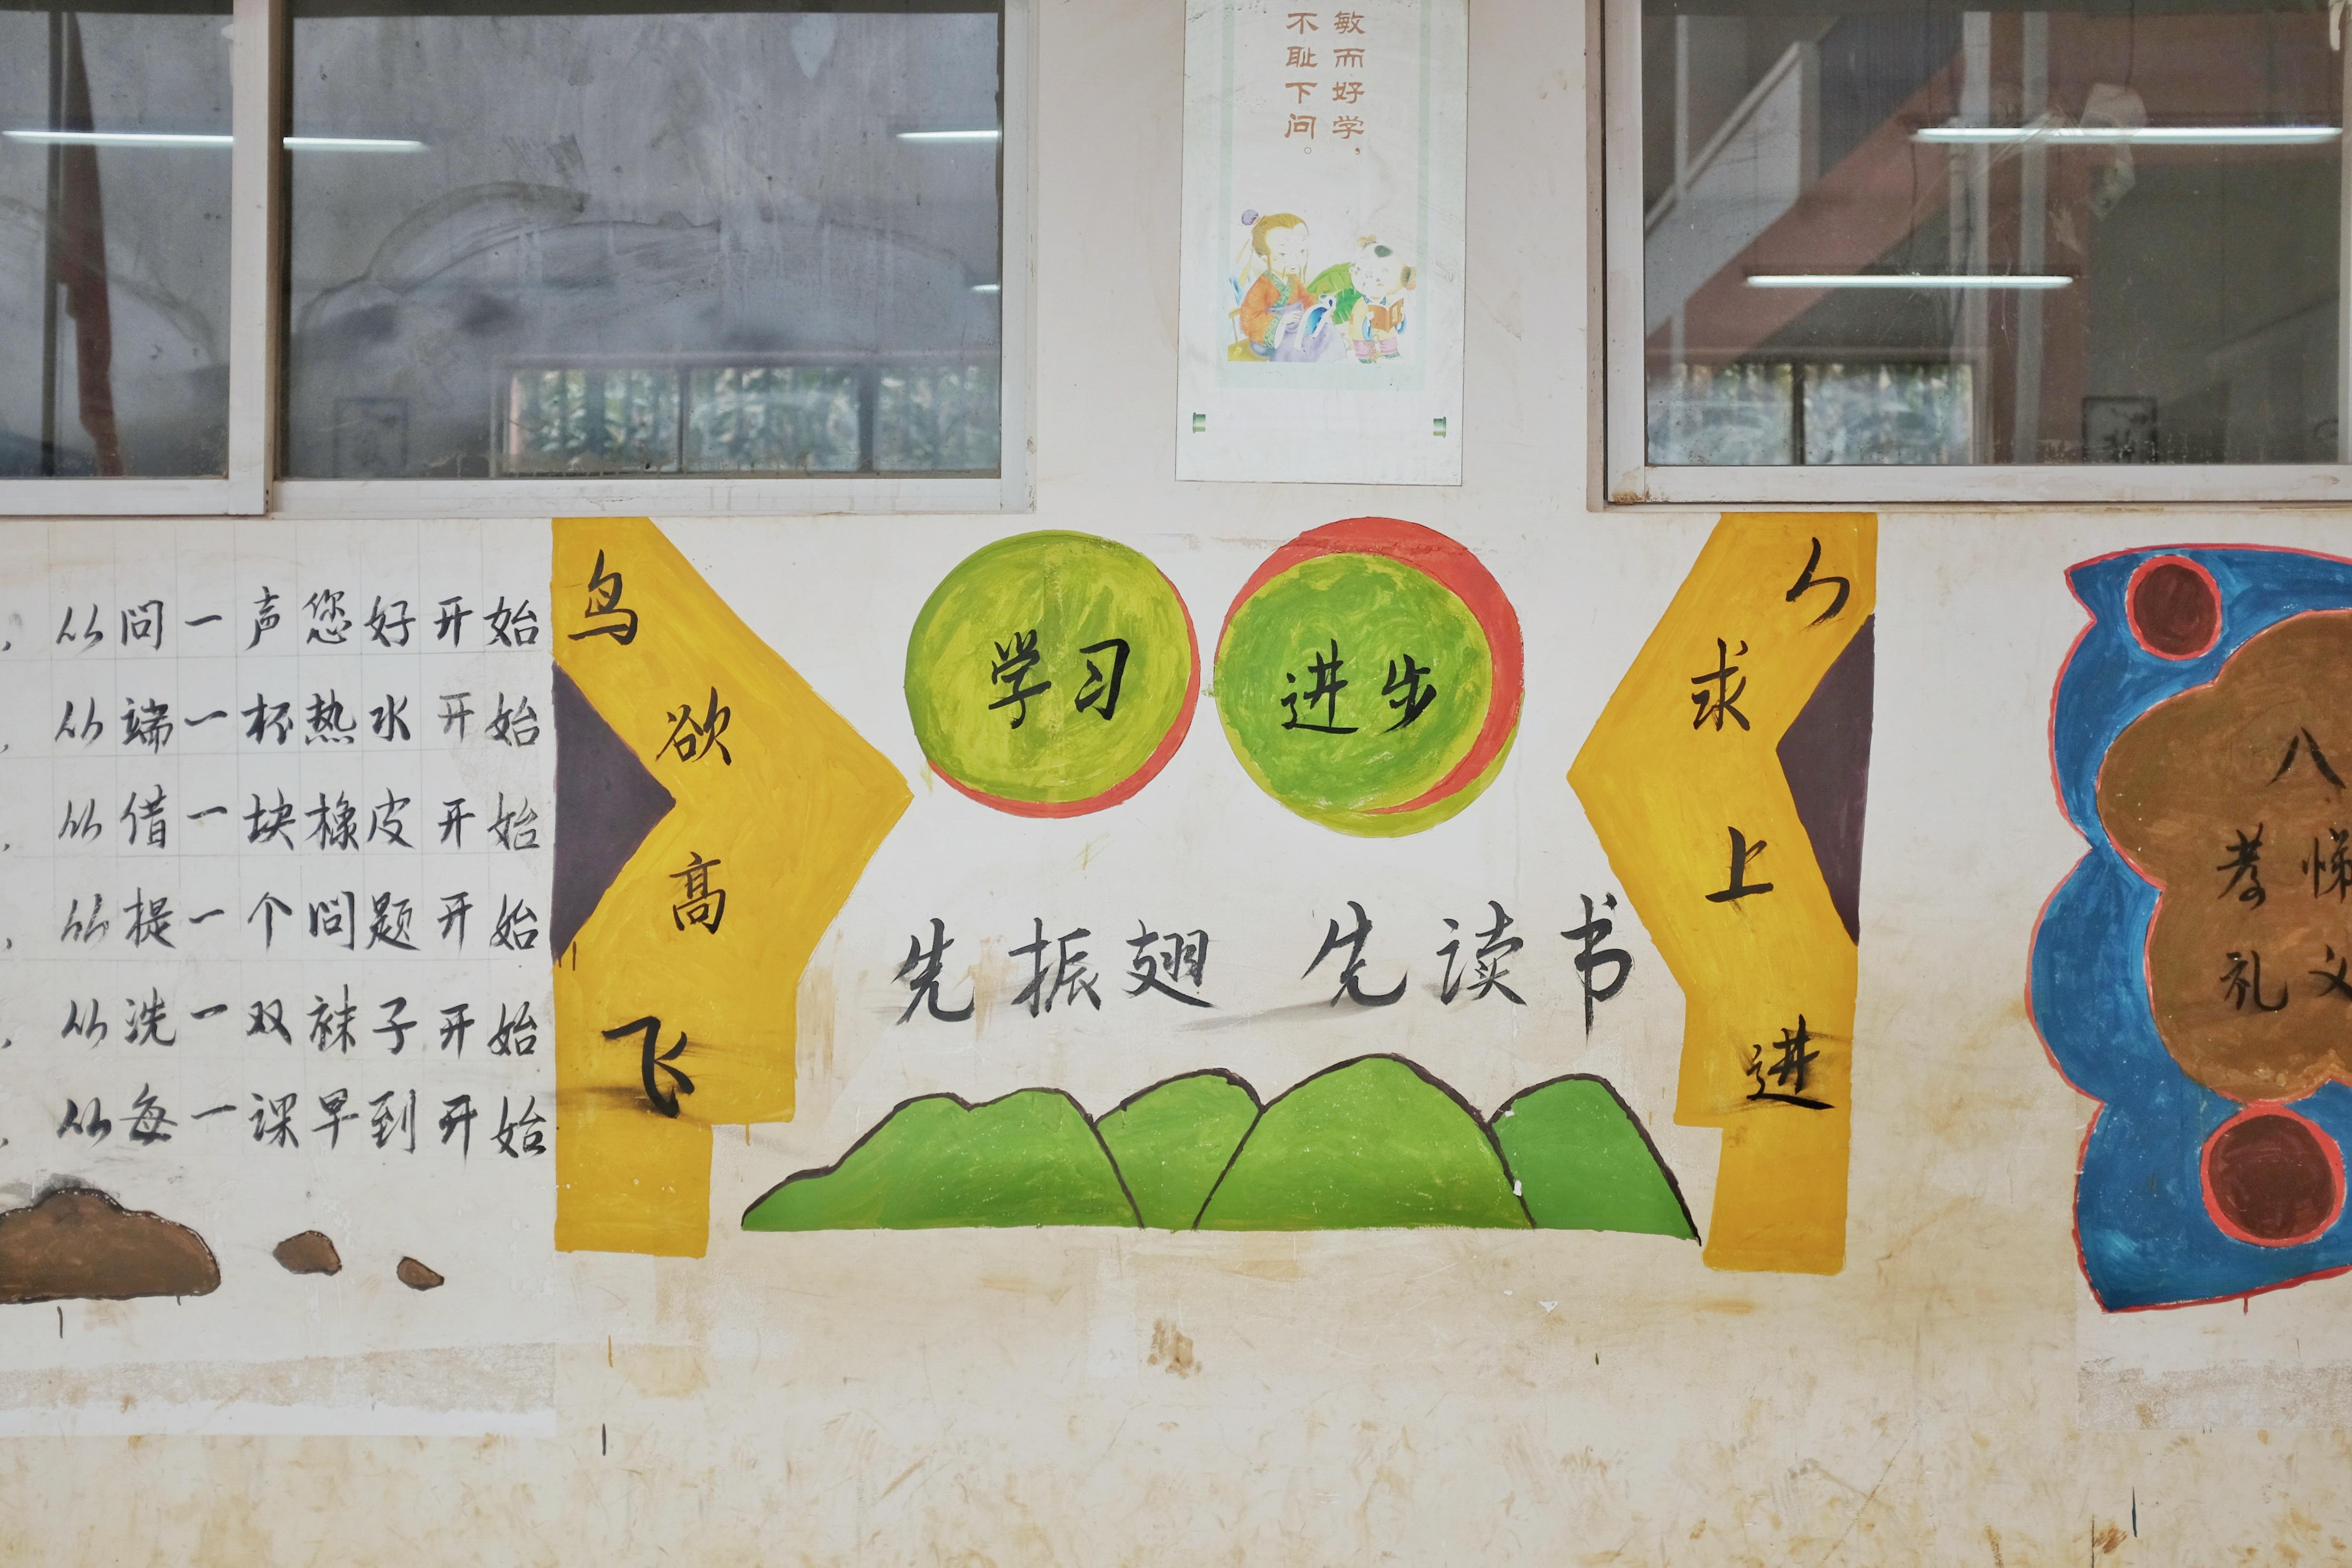 敏而好学，
不耻下问。
，从问一声您好开始
，从端一杯热水开始
，从借一块橡皮开始
，从提一个问题开始
，从洗一双袜子开始
，从每一课早到开始
鸟欲高飞
学习
进步
先振翅 先读书
人求上进
八
孝悌
礼义